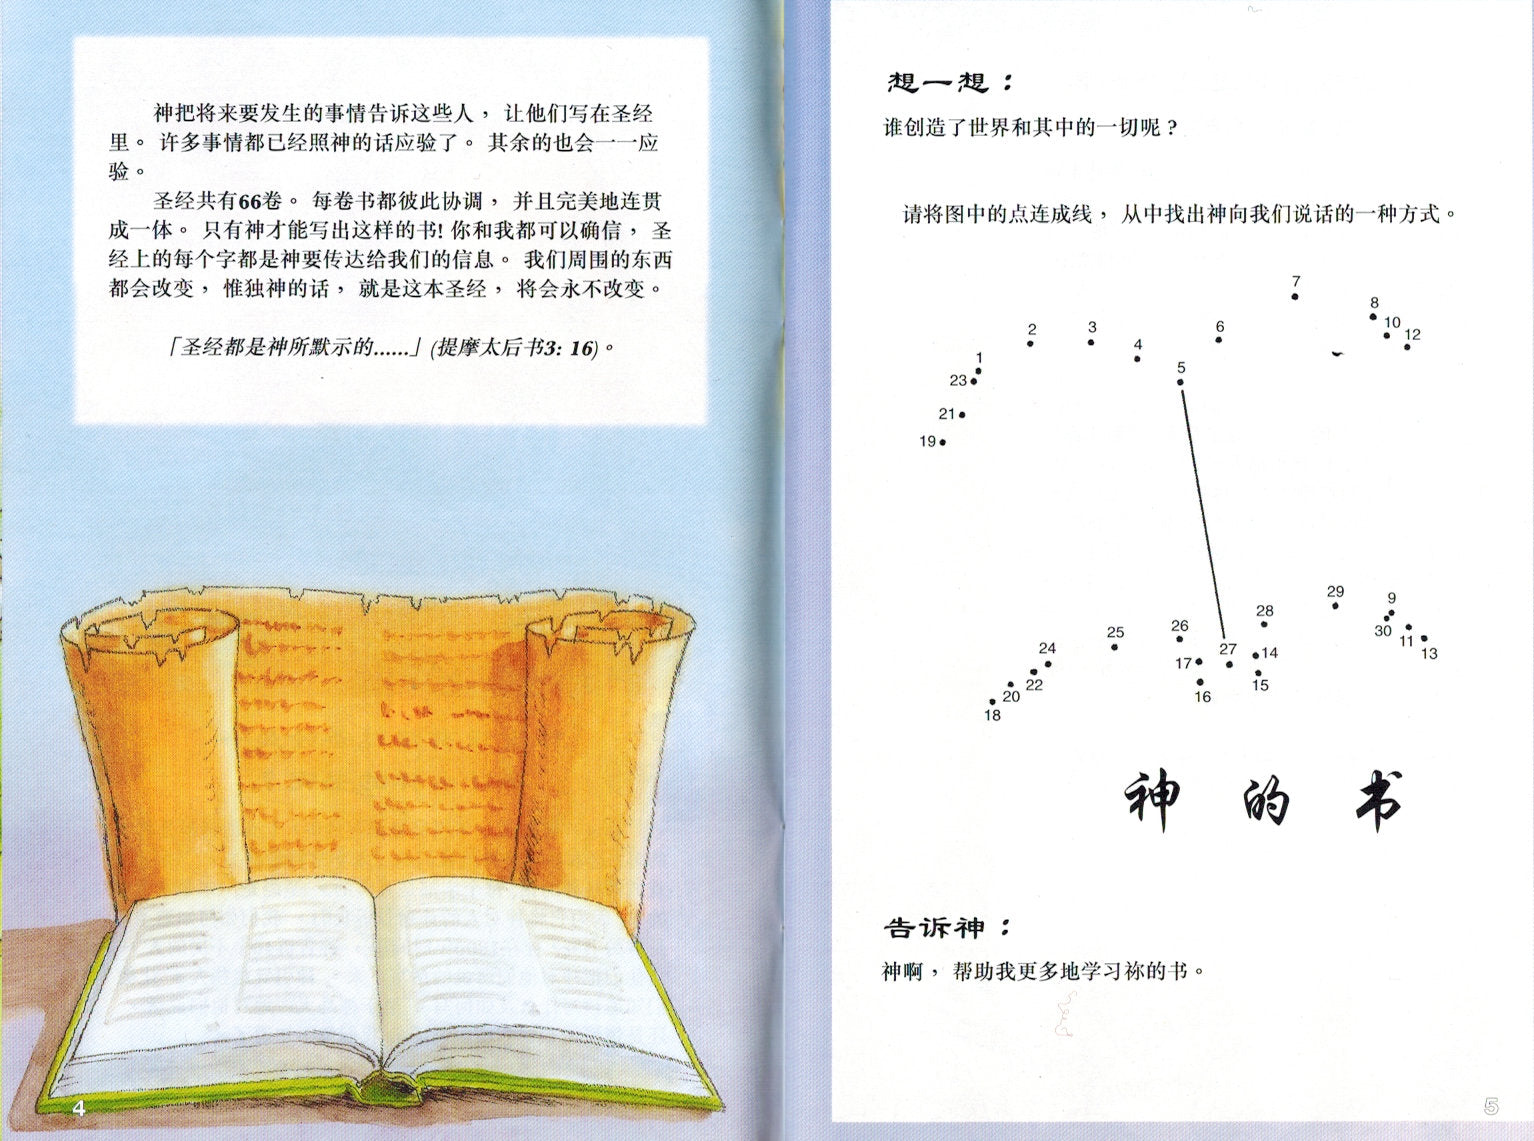 神把将来要发生的事情告诉这些人， 让他们写在圣经
里。 许多事情都已经照神的话应验了。 其余的也会一一应
验。
圣经共有66卷。 每卷书都彼此协调， 并且完美地连贯
成一体。 只有神才能写出这样的书! 你和我都可以确信， 圣
经上的每个字都是神要传达给我们的信息。 我们周围的东西
都会改变， 惟独神的话， 就是这本圣经， 将会永不改变。
「圣经都是神所默示的......」(提摩太后书3: 16)。
4
想一想：
谁创造了世界和其中的一切呢？
请将图中的点连成线， 从中找出神向我们说话的一种方式。
7
8
10
12
2
3
4
6
1
5
23
21
19
29
9
28
26
30
11
25
27
14
13
24
17
15
22
16
20
18
神 的 书
告诉神：
神啊， 帮助我更多地学习祢的书。
5